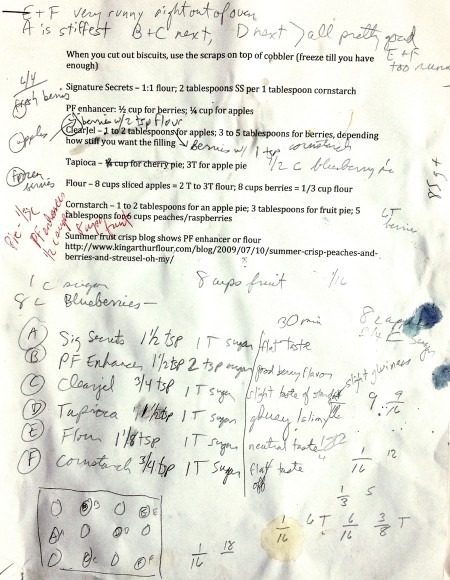 E + F very runny right out of oven
A is stiffest B + C next, D next > all pretty good
E + F too runny
When you cut out biscuits, use the scraps on top of cobbler (freeze till you have
enough)
4/4
Signature Secrets – 1:1 flour; 2 tablespoons SS per 1 tablespoon cornstarch
fresh berries
PF enhancer: ½ cup for berries; ¼ cup for apples
berries w/ 2 tsp flour
Clearjel – 1 to 2 tablespoons for apples; 3 to 5 tablespoons for berries, depending
how stiff you want the filling Berries w/ 1 tsp cornstarch
apples
Tapioca – ¼ cup for cherry pie; 3T for apple pie 1/2 C blueberry pie
frozen berries
Flour – 8 cups sliced apples = 2 T to 3T flour; 8 cups berries = 1/3 cup flour
Cornstarch – 1 to 2 tablespoons for an apple pie; 3 tablespoons for fruit pie; 5
tablespoons for 6 cups peaches/raspberries
Pie - 1/3 C
PF enhancer
1/2 C sugar
8 cups fruit
Summer fruit crisp blog shows PF enhancer or flour
http://www.kingarthurflour.com/blog/2009/07/10/summer-crisp-peaches-and-
berries-and-streusel-oh-my/
1 C sugar 8 cups fruit 1/16
8 C Blueberries –
30 min
A Sig Secrets 1 1/2 tsp 1 T sugar flat taste
B PF Enhancer 1 1/2 tsp 2 tsp sugar good berry flavor
C Clearjel 3/4 tsp 1 T sugar slight taste of slight gluiness
D Tapioca 1 1/2 tsp 1 T sugar gluey/slimy
E Flour 1 1/8 tsp 1 T sugar neutral taste
F Cornstarch 3/4 tsp 1 T Sugar flat taste
off
9 9/16
1/16 12
1/3 5
1/16 6 T 6/16 3/8 T
1/16 18